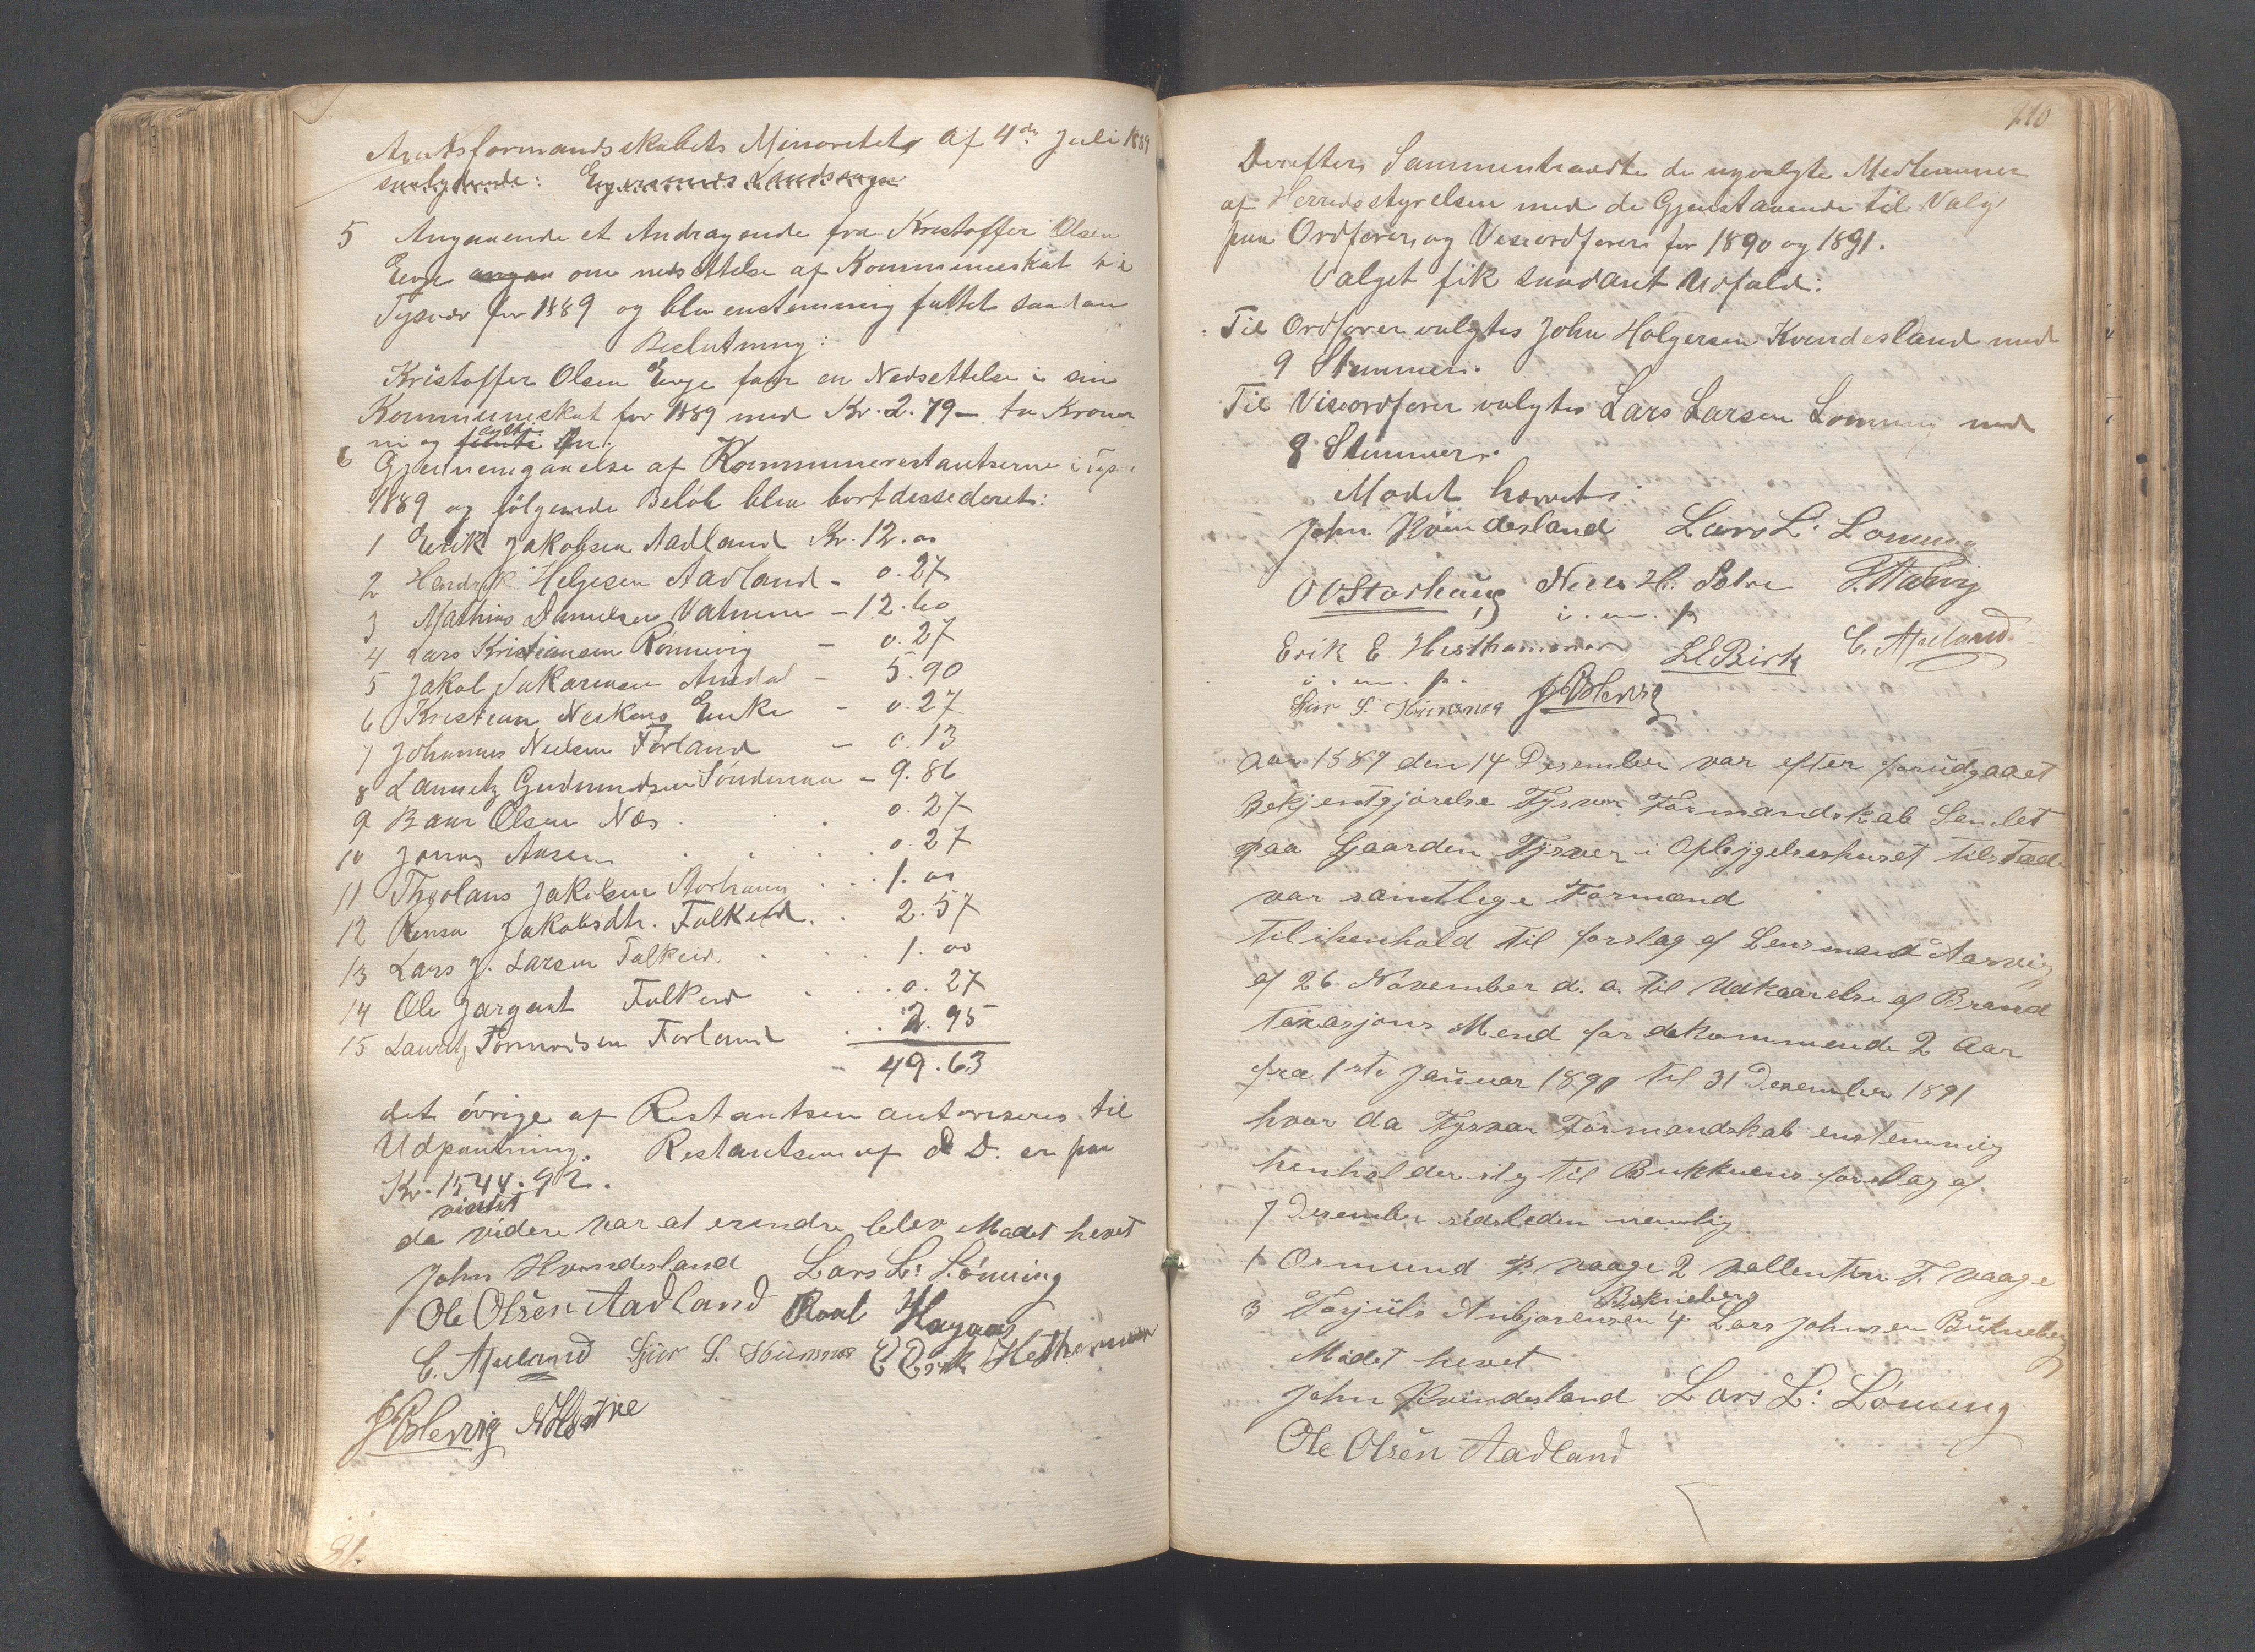 Amtsformandskabets Minoritets af 4de Juli 1889
saalydende: Egersunds Landsogn
5 Angaaende et Andragende fra Kristoffer Olsen
Eeye angaa om nedsettelse af Kommuneskat til
Tysvær for 1889 og blev enstemmig fattet saadan
Beslutning:
Kristoffer Olsen Eeye faar en Nedsettelse i sin
Kommuneskat for 1889 med Kr. 2.79 – to Kroner
ni og Øre.
6 Gjennemgaaelse af Kommunerestantserne i Tysv.
1889 og følgende Beløb blev bortdessederet:
1 Erik Jakobsen Aadland Kr. 12.00
2 Hendrik Helgesen Aadland - 0.27
3 Mathias Danielsen Vatnem - 12.60
4 Lars Kristiansen Rønnevig - 0.27
5 Jakob Sakariasen Amdal - 5.90
6 Kristian Neskens Eerke - 0.27
7 Johannes Neelsen Førland - 0.13
8 Lauritz Gudmundsen Søndenaa - 9.86
9 Baar Olsen Næs . . 0.27
10 Jonas Aasen . . . . 0.27
11 Theolaus Jakobsen Storhaug . . . 1.00
12 Rensa Jakobsdtr. Falkeid . . 2.57
13 Lars J. Larsen Falkeid . . . 1.00
14 Ole Jargant Falkeid . . . 0.27
15 Lauritz Tormodsen Førland . . 2.95
- 49.63
det øvrige af Restantsen autoriseres til
Udpantning. Restantsen af d D. er paa
Kr. 1544.92.
vidtet
da videre var at erindre blev Mødet hevet
John Hvindesland Lars L: Lønning
Ole Olsen Aadland Roal Hagaas
C. Apeland Sjur S. Kūnsnæs E Erik Hesthammer
JB Hervig NHSøtre
31.
210
Derefter Sammentraadte de nyvalgte Medlemmer
af Herredsstyrelsen med de Gjenstaaende til Valg
paa Ordfører og Viseordfører for 1890 og 1891.
Valget fik saadant Udfald:
Til Ordfører valgtes John Holgersen Kvindesland med
9 Stemmer.
Til Viseordfører valgtes Lars Larsen Lønning med
8 Stemmer.
Mødet hævet:
John Kvindesland Lars L. Lønning
O V Storhaug Niels H. Søtre
i. m. p.
Erik E. Hesthammer L E Birk C. Apeland
i. m. p.
Sjur S. Kūnsnæs JB Hervig
Aar 1889 den 14 Desember var efter forudgaaet
Bekjentgjørelse Tysvær Formandskab Samlet
paa Gaarden Tysver i Opløygelseshuset tilstæde
var samtlige Formænd
til ihenhold til forslag af Lensmand Aarvig
af 26 November d. a. til Udkaarelse af Brand
taxasjons Mend for dekommende 2 Aar
fra 1ste Januar 1890 til 31 Desember 1891
hvor da Tysvær Formandskab enstemmig
henholder sig til Bukkuens forslag af
7 Desember sidsleden nemlig
1 Ormund P. vaage 2 vallentin T. vaage
Bukneberg
3 Torjuls Anbjørensen 4 Lars Johnsen Būkneberg
Mødet hevet
John Kvindesland Lars L: Lønning
Ole Olsen Aadland